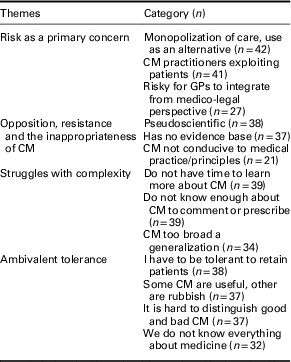 Themes Category (n)
Risk as a primary concern Monopolization of care, use
as an alternative (n = 42)
CM practitioners exploiting
patients (n = 41)
Risky for GPs to integrate
from medico-legal
perspective (n = 27)
Opposition, resistance Pseudoscientific (n = 38)
and the inappropriateness Has no evidence base (n = 37)
of CM CM not conducive to medical
practice/principles (n = 21)
Struggles with complexity Do not have time to learn
more about CM (n = 39)
Do not know enough about
CM to comment or prescribe
(n = 39)
CM too broad a
generalization (n = 34)
Ambivalent tolerance I have to be tolerant to retain
patients (n = 38)
Some CM are useful, other
are rubbish (n = 37)
It is hard to distinguish good
and bad CM (n = 37)
We do not know everything
about medicine (n = 32)